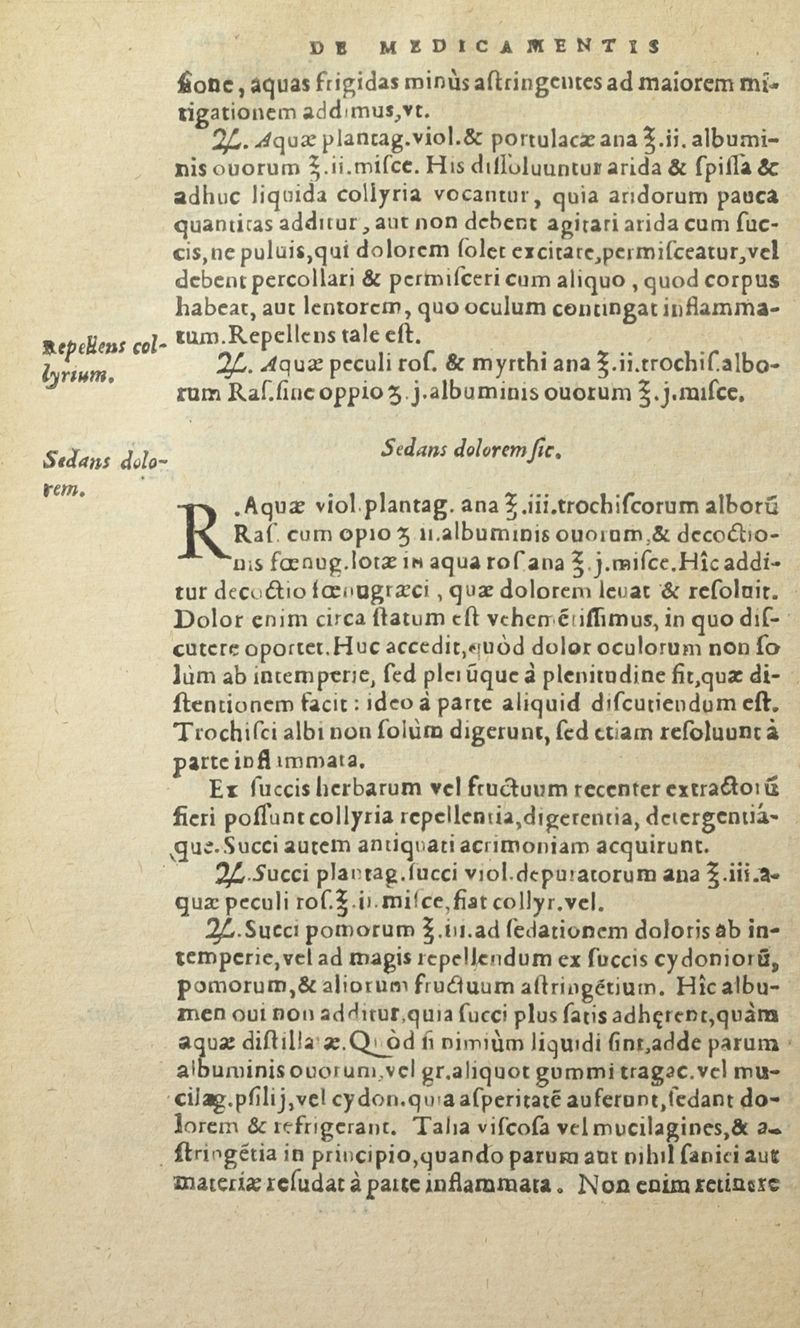 DE MEDICAMENTIS
ſione, aquas frigidas minùs aſtringentes ad maiorem mi-
tigationem addimus, vt.
♃. Aquæ plantag. viol. & portulacæ ana ℥.ii. albumi-
nis ouorum ℥.ii. miſce. His diſſoluuntur arida & ſpiſſa &
adhuc liquida collyria vocantur, quia aridorum pauca
quantitas additur, aut non debent agitari arida cum ſuc-
cis, ne puluis, qui dolorem ſolet excitare, permiſceatur, vel
debent percollari & permiſceri cum aliquo, quod corpus
habeat, aut lentorem, quo oculum contingat inflamma-
tum. Repellens tale eſt.
Repellens col-
lyrium.
♃. Aquæ peculi roſ. & myrthi ana ℥.ii. trochiſ. albo-
rum Raſ. ſine oppio ʒ.j. albuminis ouorum ℥.j. miſce.
Sedans dolorem ſic.
Sedans dolo-
rem.
R. Aquæ viol. plantag. ana ℥.iii. trochiſcorum alborū
Raſ. cum opio ʒ ii. albuminis ouorum, & decoctio-
nis fœnug. lotæ in aqua roſ ana ℥.j. miſce. Hîc addi-
tur decoctio fœnugræci, quæ dolorem leuat & reſoluit.
Dolor enim circa ſtatum eſt vehemētiſſimus, in quo diſ-
cutere oportet. Huc accedit, quòd dolor oculorum non ſo
lùm ab intemperie, ſed plerūque à plenitudine fit, quæ di-
ſtentionem facit : ideo à parte aliquid diſcutiendum eſt.
Trochiſci albi non ſolùm digerunt, ſed etiam reſoluunt à
parte infl immata.
Ex ſuccis herbarum vel fructuum recenter extractorū
fieri poſſunt collyria repellentia, digerentia, detergentiá-
que. Succi autem antiquati acrimoniam acquirunt.
♃. Succi plantag. ſucci viol. depuratorum ana ℥.iii. a-
quæ peculi roſ. ℥.ii. miſce, fiat collyr. vel.
♃. Succi pomorum ℥.iii. ad ſedationem doloris ab in-
temperie, vel ad magis repellendum ex ſuccis cydoniorū,
pomorum, & aliorum fructuum aſtringētium. Hîc albu-
men oui non additur, quia ſucci plus ſatis adhęrent, quàm
aquæ diſtillatæ. Quòd ſi nimiùm liquidi ſint, adde parum
albuminis ouorum, vel gr. aliquot gummi tragac. vel mu-
cilag. pſilij, vel cydon. quia aſperitatē auferunt, ſedant do-
lorem & refrigerant. Talia viſcoſa vel mucilagines, & a-
ſtringētia in principio, quando parum aut nihil ſaniei aut
materiæ reſudat à parte inflammata. Non enim retinere